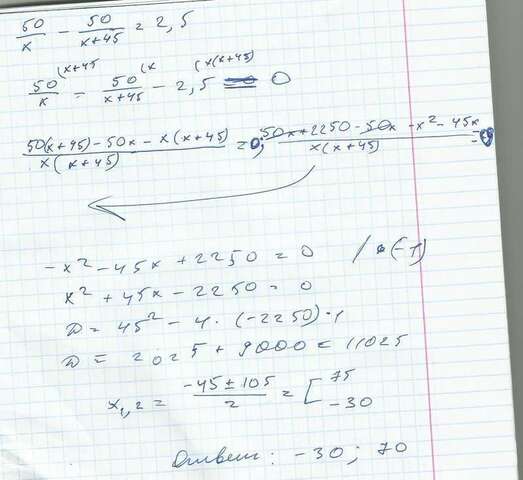 50/x - 50/x+45 = 2,5
50/x (x+45 - 50/x+45 (x - 2,5 (x(x+45) = 0
50(x+45)-50x-x(x+45)/x(x+45) = 0; 50x+2250-50x-x²-45x/x(x+45) = 0
-x²-45x+2250=0 /•(-1)
x²+45x-2250=0
D=45²-4·(-2250)·1
D=2025+9000=11025
x1,2 = -45±105/2 = [ 75
-30
Ответ: -30; 70